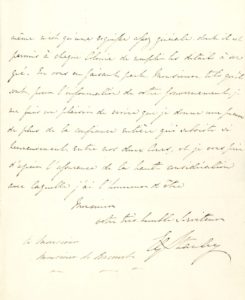 même n'est qu'une esquisse assez générale dont il est
permis à chaque de remplir les détails à son
gré. En vous en faisant part Monsieur tels qu'ils
sont pour l'information de votre Gouvernement, je
me fais un plaisir de croire que je donne une preuve
de plus de la confiance entière qui subsiste si
heureusement entre nos deux Cours, et je vous prie
d'agréer l'assurance de la haute considération
avec laquelle j'ai l'honneur d'être
Monsieur
votre très humble Serviteur
à Monsieur
Monsieur de